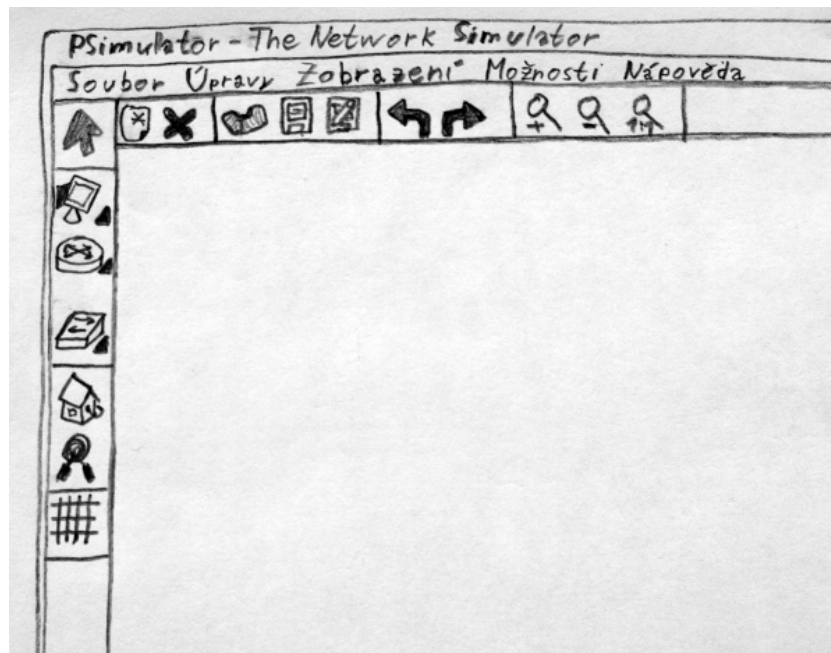 PSimulator - The Network Simulator
Soubor Úpravy Zobrazení Možnosti Nápověda